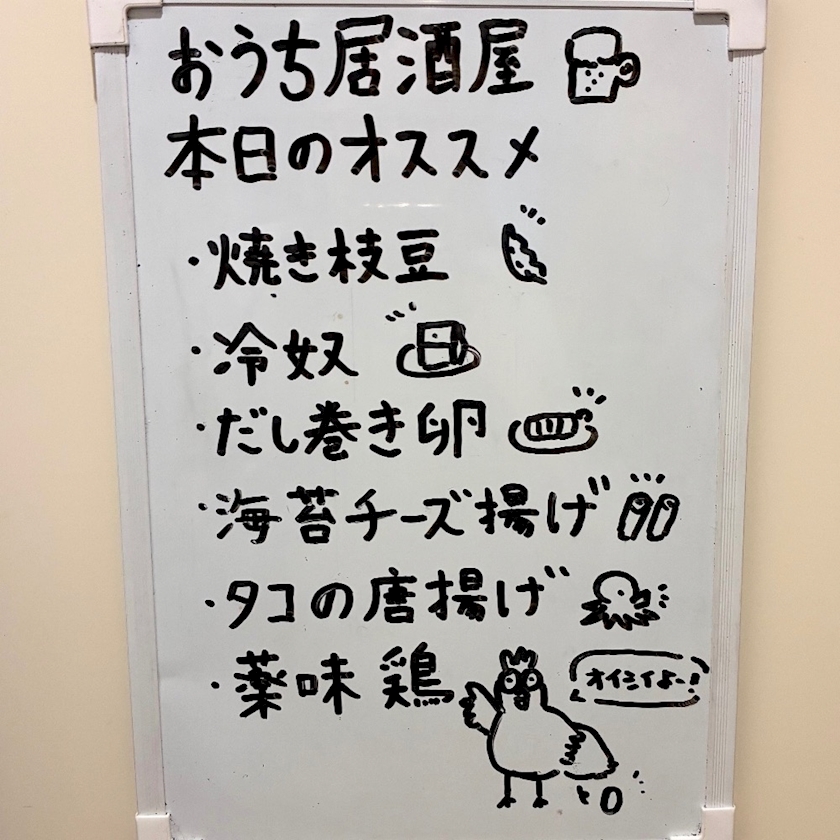 おうち居酒屋
本日のオススメ
・焼き枝豆
・冷奴
・だし巻き卵
・海苔チーズ揚げ
・タコの唐揚げ
・薬味 鶏
オイシイよー!